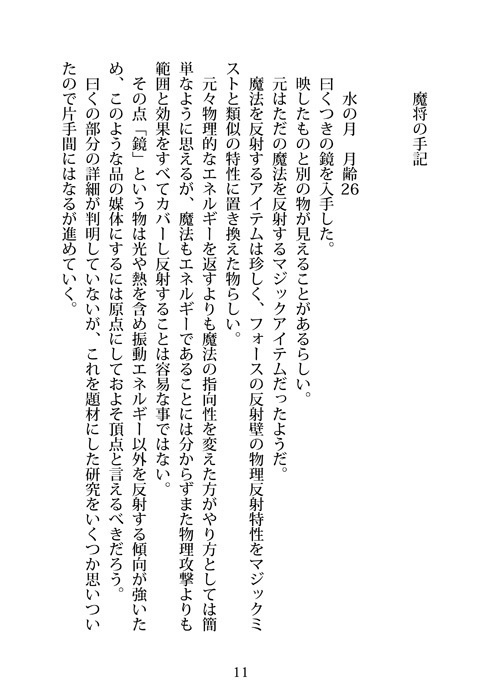 魔将の手記
水の月　月齢26
曰くつきの鏡を入手した。
映したものと別の物が見えることがあるらしい。
元はただの魔法を反射するマジックアイテムだったようだ。
魔法を反射するアイテムは珍しく、フォースの反射壁の物理反射特性をマジックミ
ストと類似の特性に置き換えた物らしい。
元々物理的なエネルギーを返すよりも魔法の指向性を変えた方がやり方としては簡
単なように思えるが、魔法もエネルギーであることには分からずまた物理攻撃よりも
範囲と効果をすべてカバーし反射することは容易な事ではない。
その点「鏡」という物は光や熱を含め振動エネルギー以外を反射する傾向が強いた
め、このような品の媒体にするには原点にしておよそ頂点と言えるべきだろう。
曰くの部分の詳細が判明していないが、これを題材にした研究をいくつか思いつい
たので片手間にはなるが進めていく。
11